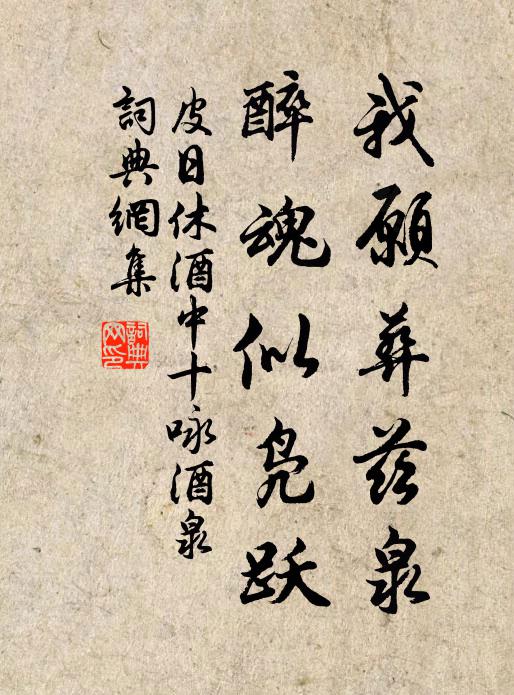 我願葬茲泉
醉魂似鳧跃
皮日休酒中十咏酒泉
詞典網集
詞典网印